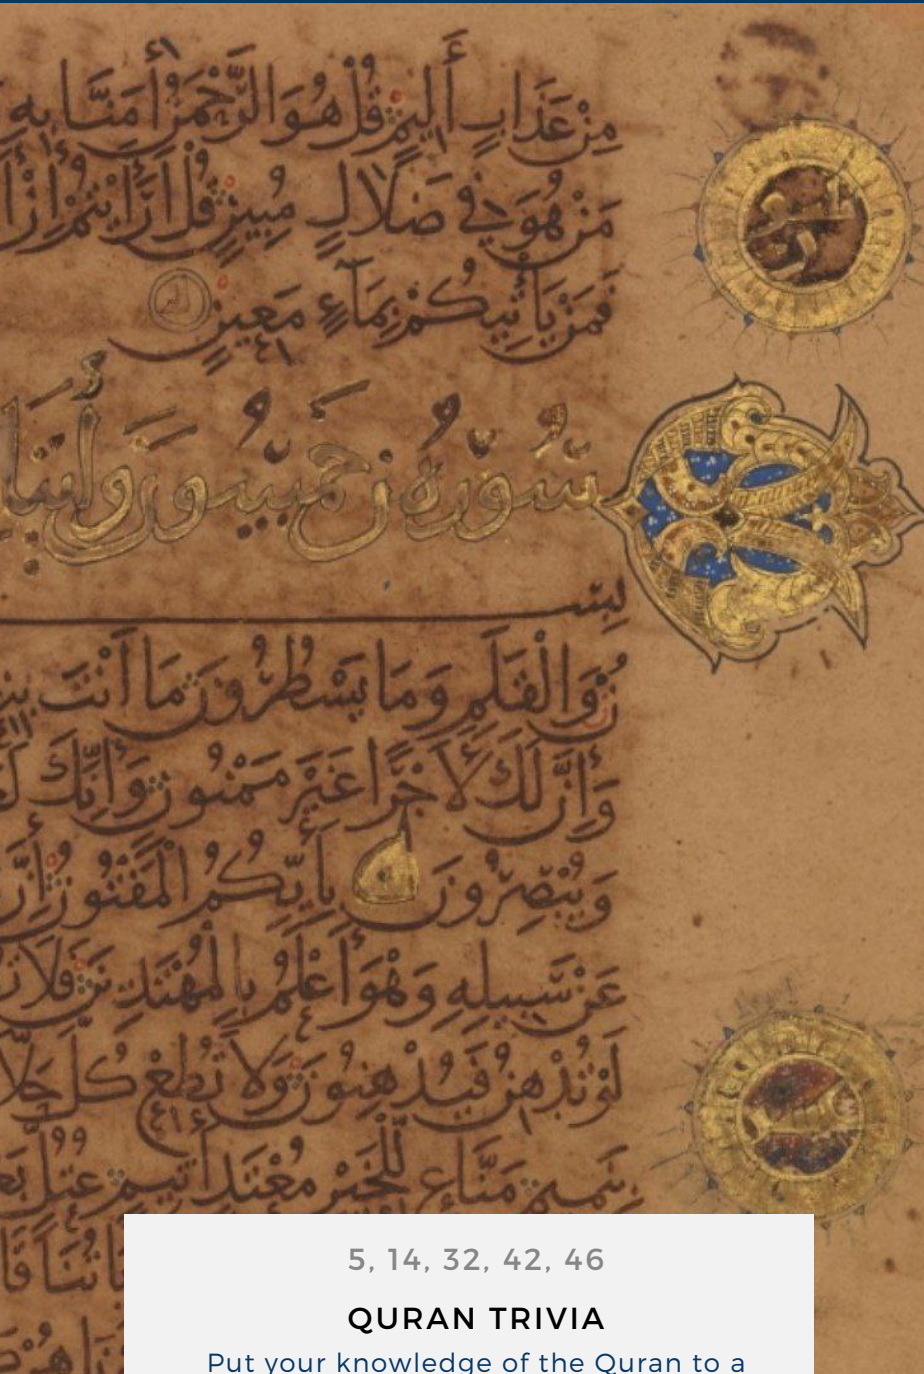 مِنْ عَذَابٍ أَلِيمٍ قُلْ هُوَ الرَّحْمَنُ آمَنَّا بِهِ
مَنْ هُوَ فِي ضَلَالٍ مُبِينٍ قُلْ أَرَأَيْتُمْ إِنْ
فَمَنْ يَأْتِيكُمْ بِمَاءٍ مَعِينٍ
سُورَةُ ن خَمْسُونَ
نْ وَالْقَلَمِ وَمَا يَسْطُرُونَ مَا أَنْتَ
وَإِنَّ لَكَ لَأَجْرًا غَيْرَ مَمْنُونٍ وَإِنَّكَ
وَيُبْصِرُونَ بِأَيِّكُمُ الْمَفْتُونُ إِنَّ
عَنْ سَبِيلِهِ وَهْوَ أَعْلَمُ بِالْمُهْتَدِينَ فَلَا
لَوْ تُدْهِنُ فَيُدْهِنُونَ وَلَا تُطِعْ كُلَّ
بِنَمِيمٍ مَنَّاعٍ لِلْخَيْرِ مُعْتَدٍ أَثِيمٍ عُتُلٍّ
5, 14, 32, 42, 46
QURAN TRIVIA
Put your knowledge of the Quran to a